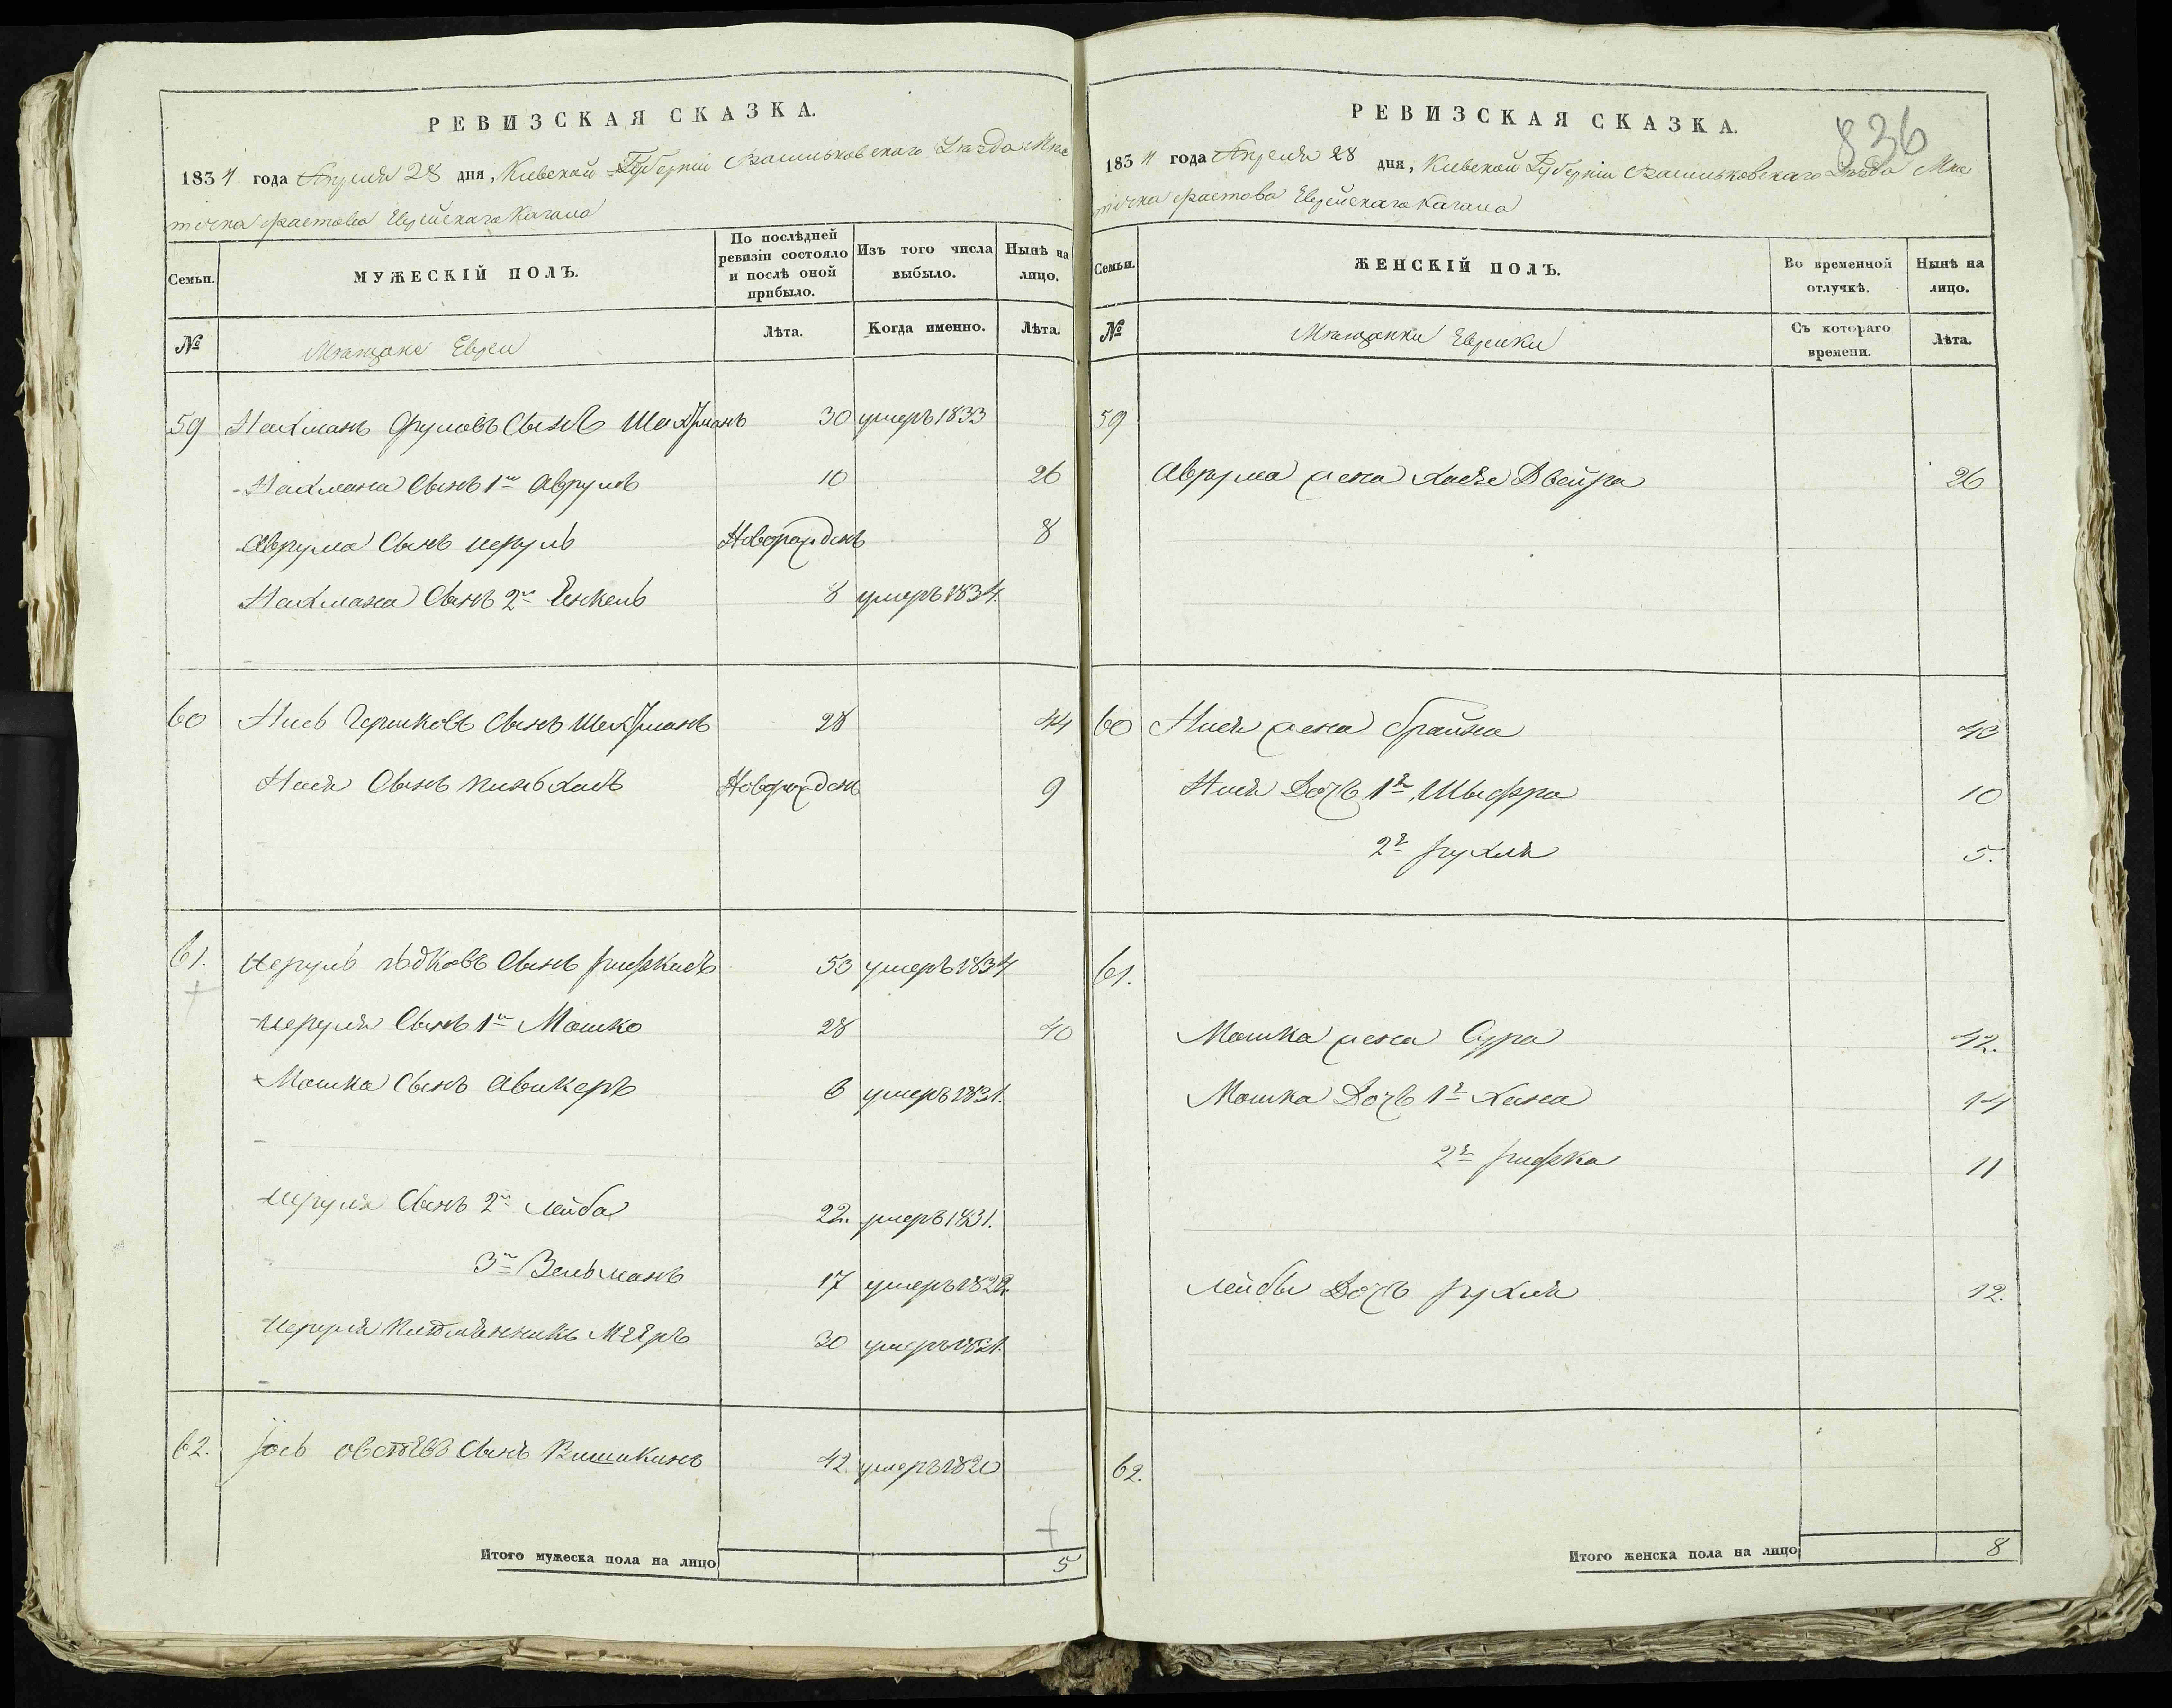 РЕВИЗСКАЯ СКАЗКА.
1834 года Апреля 28 дня, Киевской Губернiи Васильковскаго Уѣзда Мѣс
течка Фастова Еврейскаго Кагала
Семьи. МУЖЕСКІЙ ПОЛЪ. По послѣдней ревизіи состояло и послѣ оной прибыло. Изъ того числа выбыло. Нынѣ на лицо.
№ Мѣщане Евреи Лѣта. Когда именно. Лѣта.
59 Нахманъ Сруловъ Сынъ Шехтманъ 30 умеръ 1833
Нахмана Сынъ 1й Аврумъ 10 26
Аврума Сынъ Иерулъ Новорожденъ 8
Нахмана Сынъ 2й Енкель 8 умеръ 1834.
60 Нисъ Гершковъ Сынъ Шехтманъ 28 44
Нися Сынъ Пиньхасъ Новорожденъ 9
61. Иеруль Сынъ 53 умеръ 1834
Иеруля Сынъ 1й Мошко 28 40
Мошка Сынъ 6 умеръ 1831.
Иеруля Сынъ 2й Лейба 22. умеръ 1831.
3й Зельманъ 17 умеръ
Иеруля Племѣнникъ Мееръ 30 умеръ 1821.
62. Іось Сынъ 42. умеръ 1820
Итого мужеска пола на лицо 5
РЕВИЗСКАЯ СКАЗКА.
836
1834 года Апреля 28 дня, Киевской Губернiи Васильковскаго Уѣзда Мѣс
течка Фастова Еврейскаго Кагала
Семьи. ЖЕНСКІЙ ПОЛЪ. Во временной отлучкѣ. Нынѣ на лицо.
№ Мѣщанки Еврейки Съ котораго времени. Лѣта.
59
Аврума жена Двейра 26
60 Нися жена Брайна 43
Нися Дочь 1я Шыфра 10
2я Рухля 5.
61.
Мошка жена Сура 42.
Мошка Дочь 1я Хана 14
2я Рифка 11
Лейбы Дочь Рухля 12.
62.
Итого женска пола на лицо 8